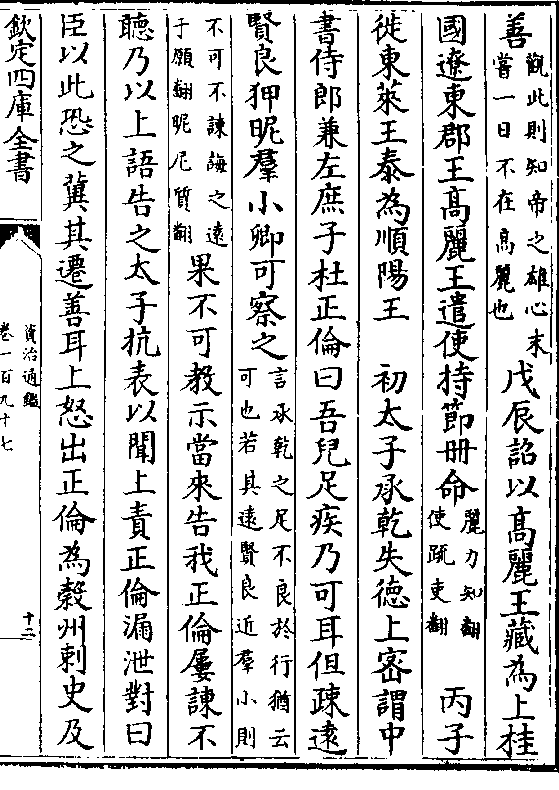 善觀此則知帝之雄心末
嘗一日不在高麗也戊辰詔以高麗王藏為上桂
國遼東郡王高麗王遣使持節冊命麗力知翻
使疏吏翻丙子
徙東萊王泰為順陽王 初太子承乾失德上密謂中
書侍郎兼左庶子杜正倫曰吾兒足疾乃可耳但疎逺
賢良狎昵羣小卿可察之言承乾之足不良於行猶云
可也若其遠賢良近羣小則
不可不諫誨之遠
于願翻昵尼質翻果不可教示當來告我正倫屢諫不
聽乃以上語告之太子抗表以聞上責正倫漏泄對曰
臣以此恐之冀其遷善耳上怒出正倫為穀州刺史及
欽定四庫全書
資治通鑑
卷一百九十七
十二